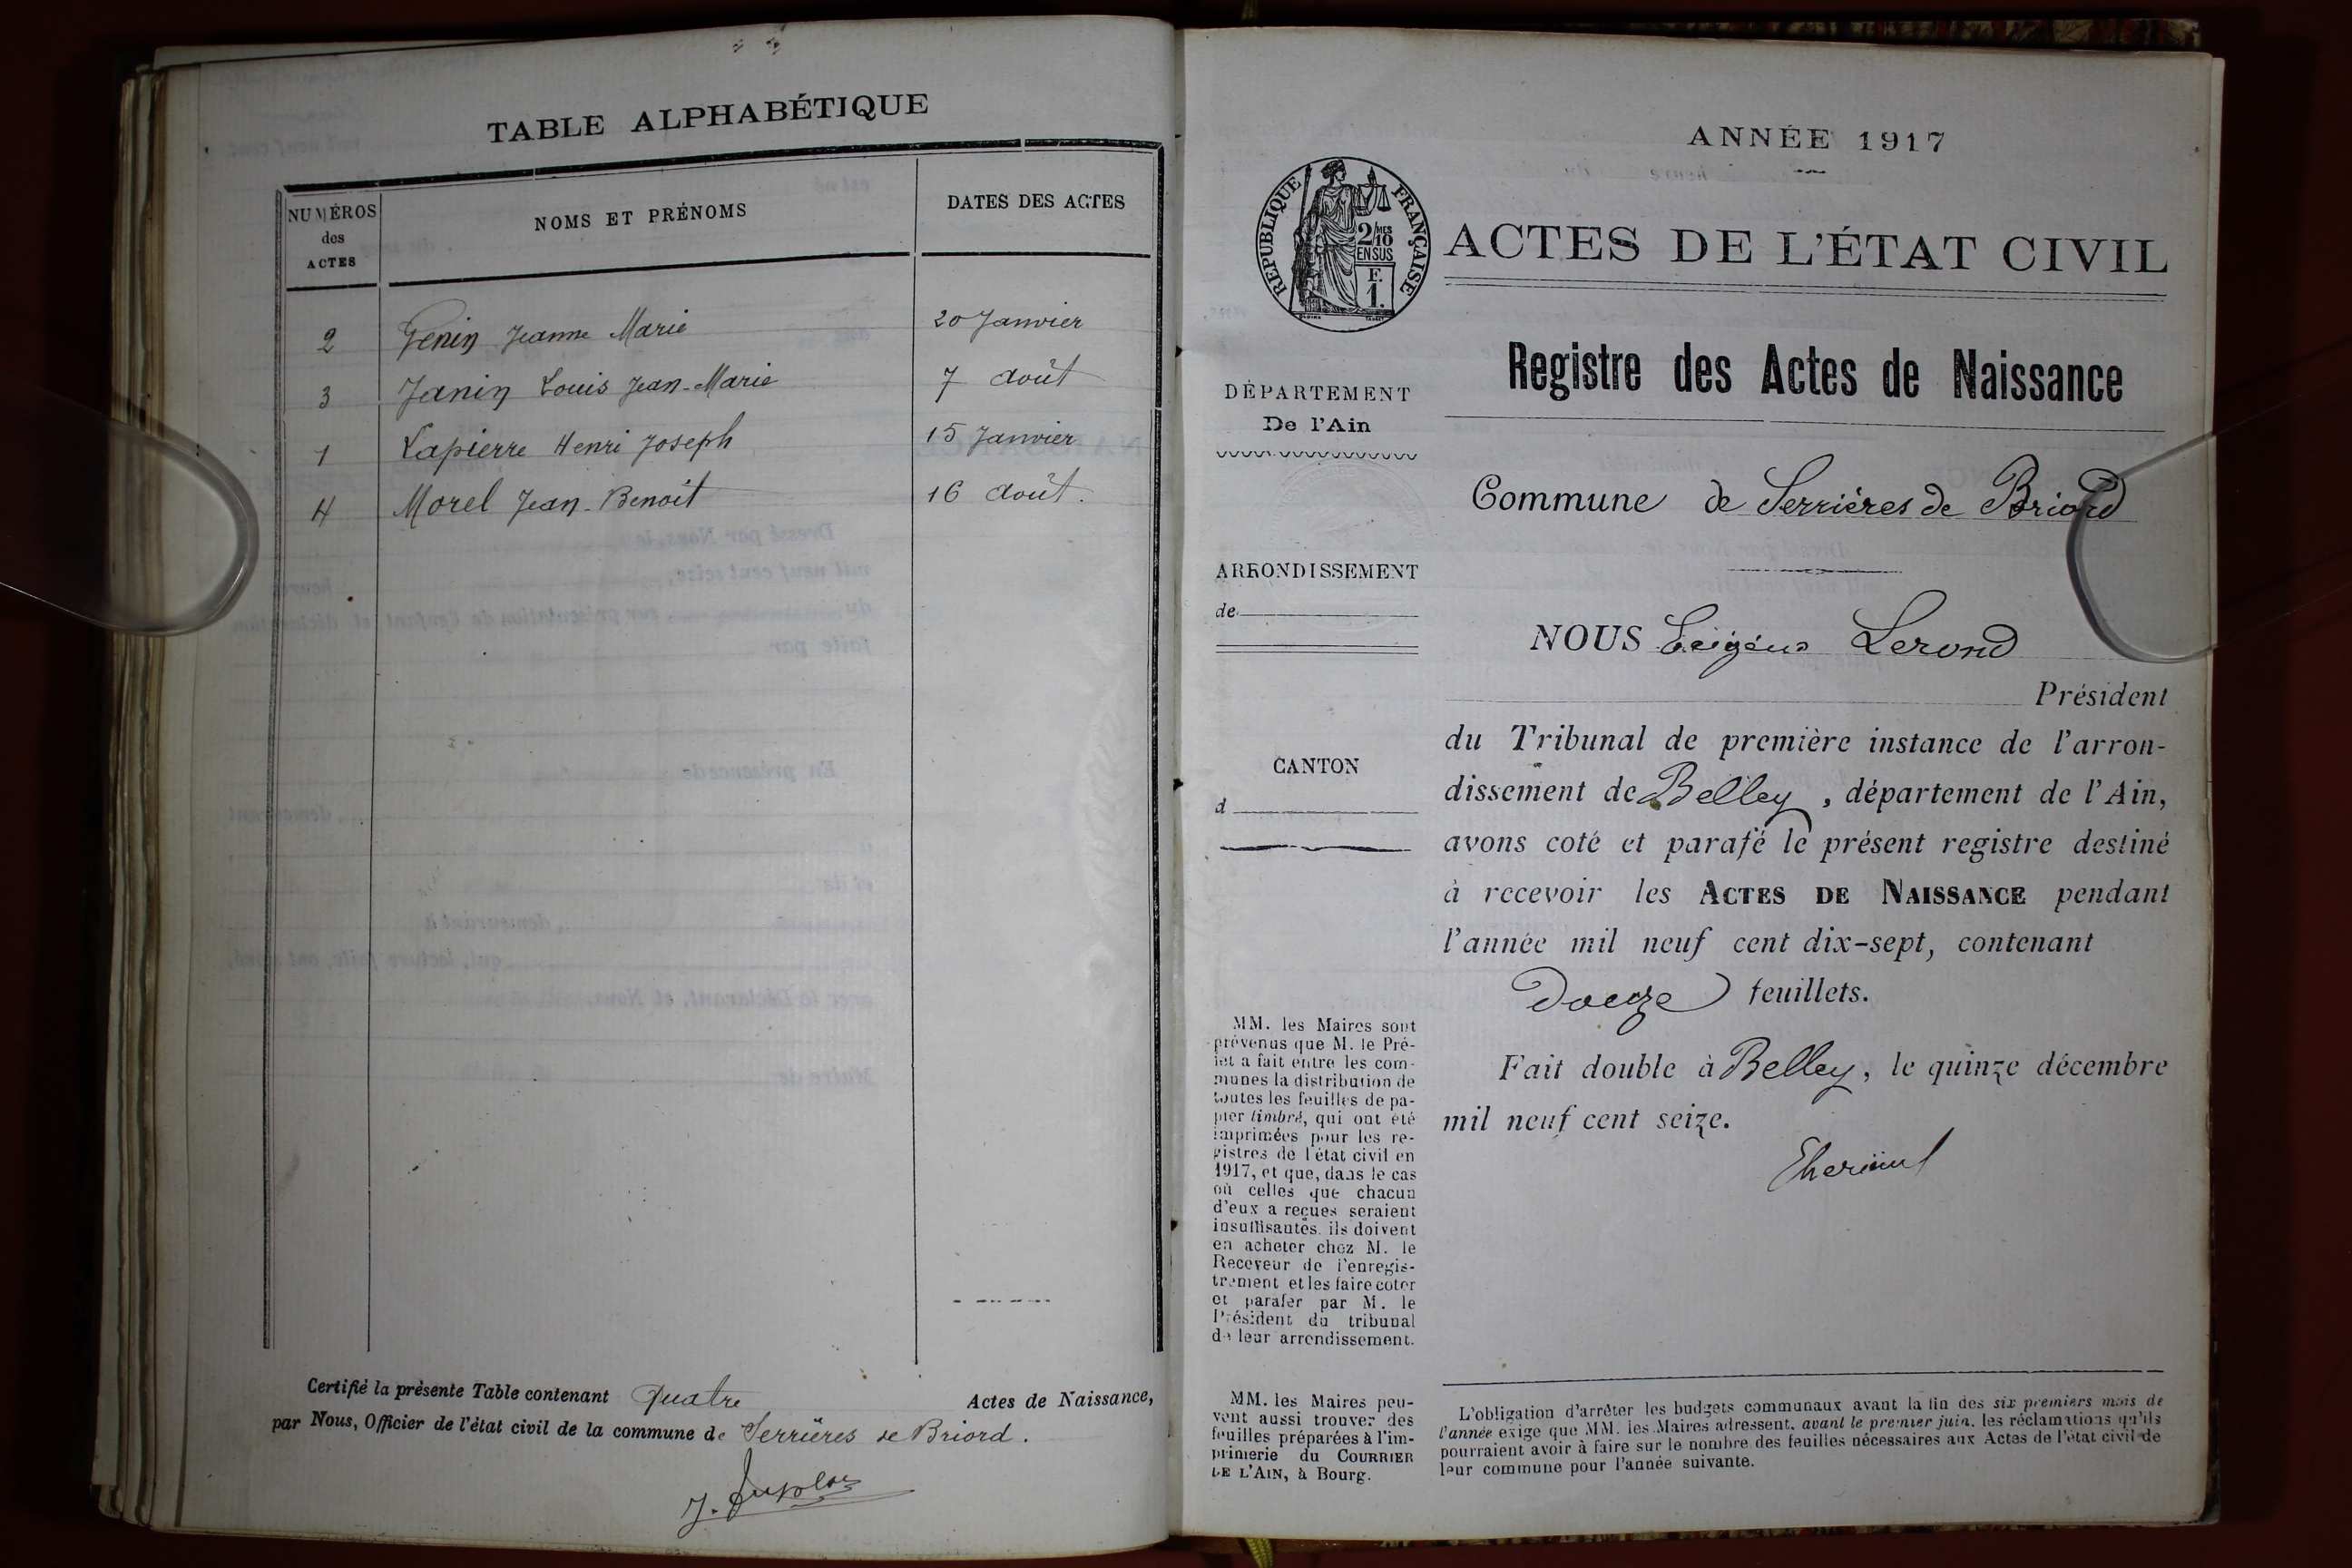 TABLE ALPHABÉTIQUE
NUMÉROS
des
ACTES
NOMS ET PRÉNOMS
DATES DES ACTES
2 Genin Jeanne Marie 20 Janvier
3 Janin Louis Jean-Marie 7 Août
1 Lapierre Henri Joseph 15 Janvier
4 Morel Jean-Benoit 16 Août.
Certifié la présente Table contenant Quatre Actes de Naissance,
par Nous, Officier de l'état civil de la commune de Serrières de Briord.
ANNÉE 1917
RÉPUBLIQUE FRANÇAISE
2/10 MES
EN SUS
F.
1.
ACTES DE L'ÉTAT CIVIL
Registre des Actes de Naissance
DÉPARTEMENT
De l'Ain
Commune de Serrières de Briord
ARRONDISSEMENT
de
NOUS Eugène Lerond
Président
du Tribunal de première instance de l'arron-
dissement de Belley, département de l'Ain,
avons coté et parafé le présent registre destiné
à recevoir les ACTES DE NAISSANCE pendant
l'année mil neuf cent dix-sept, contenant
Douze feuillets.
Fait double à Belley, le quinze décembre
mil neuf cent seize.
CANTON
d
MM. les Maires sont
prévenus que M. le Pré-
fet a fait entre les com-
munes la distribution de
toutes les feuilles de pa-
pier timbré, qui ont été
imprimées pour les re-
gistres de l'état civil en
1917, et que, dans le cas
où celles que chacun
d'eux a reçues seraient
insuffisantes, ils doivent
en acheter chez M. le
Receveur de l'enregis-
trement et les faire coter
et parafer par M. le
Président du tribunal
de leur arrondissement.
MM. les Maires peu-
vent aussi trouver des
feuilles préparées à l'im-
primerie du COURRIER
DE L'AIN, à Bourg.
L'obligation d'arrêter les budgets communaux avant la fin des six premiers mois de
l'année exige que MM. les Maires adressent, avant le premier juin, les réclamations qu'ils
pourraient avoir à faire sur le nombre des feuilles nécessaires aux Actes de l'état civil de
leur commune pour l'année suivante.